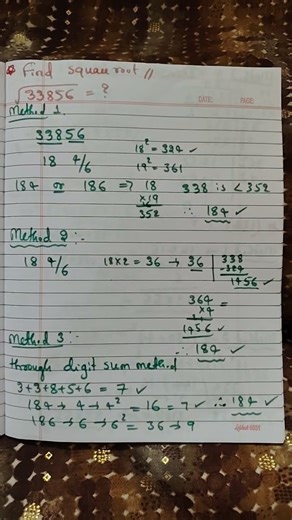 Q Find square root //
√33856 = ?
DATE: PAGE:
Method 1.
33856
18 4/6 18² = 324 ✓
19² = 361
184 or 186 => 18 338 is < 352
×19
352 ∴ 184 ✓
Method 2 :-
18 4/6 18×2 = 36 → 36 338
-324
1456 ✓
364 =
×4
1456 ✓
∴ 184 ✓
Method 3 :-
through digit sum method
3+3+8+5+6 = 7 ✓
184 → 4 → 4² = 16 = 7 ✓ ∴ 184 ✓
186 → 6 → 6² = 36 → 9